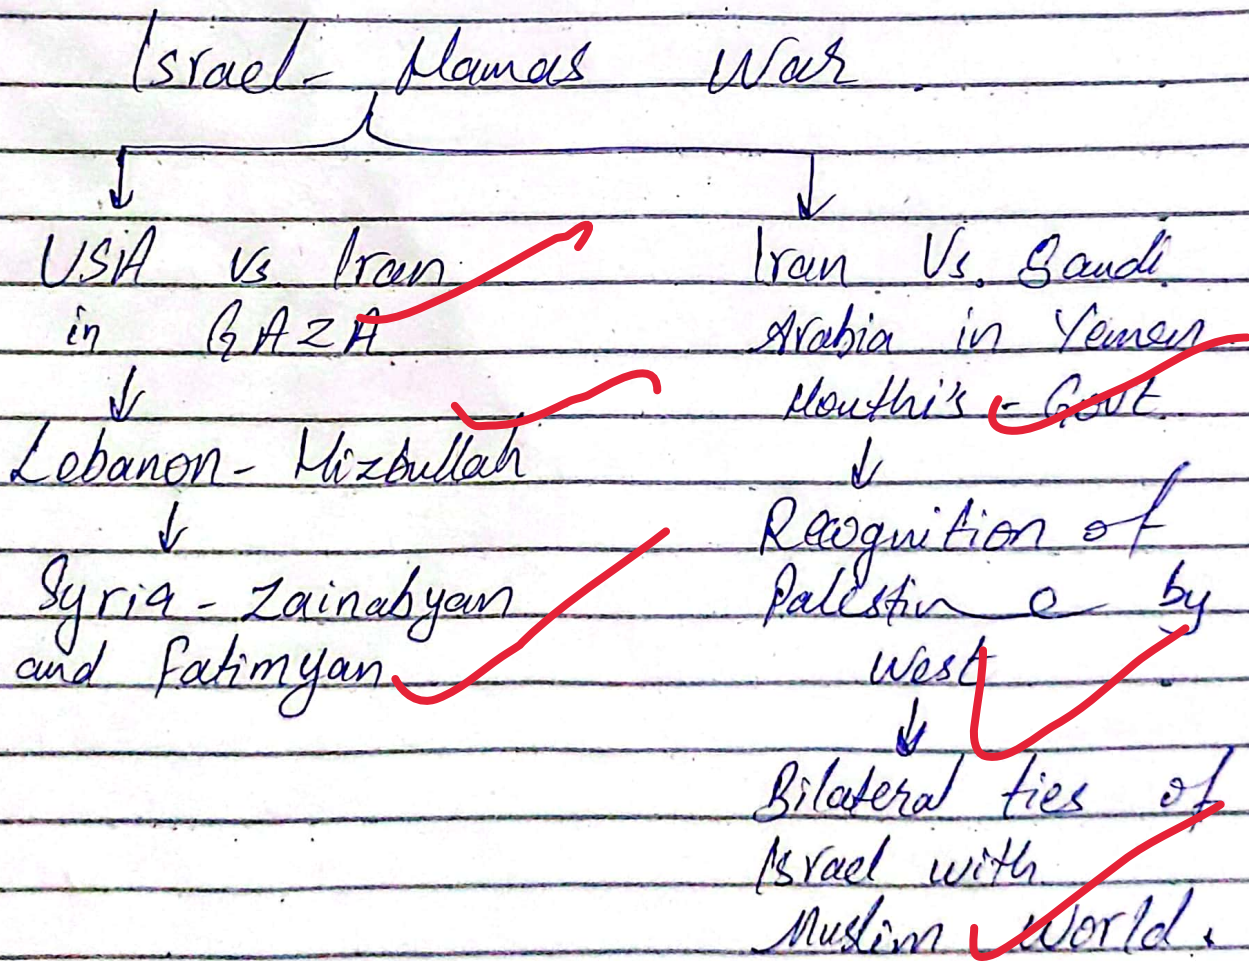 Israel- Hamas War
USA Vs. Iran
in GAZA
Lebanon- Hizbullah
Syria - Zainabyan
and Fatimyan
Iran Vs. Saudi
Arabia in Yemen
Houthi's - Govt.
Recognition of
Palestine by
West
Bilateral ties of
Israel with
Muslim World.